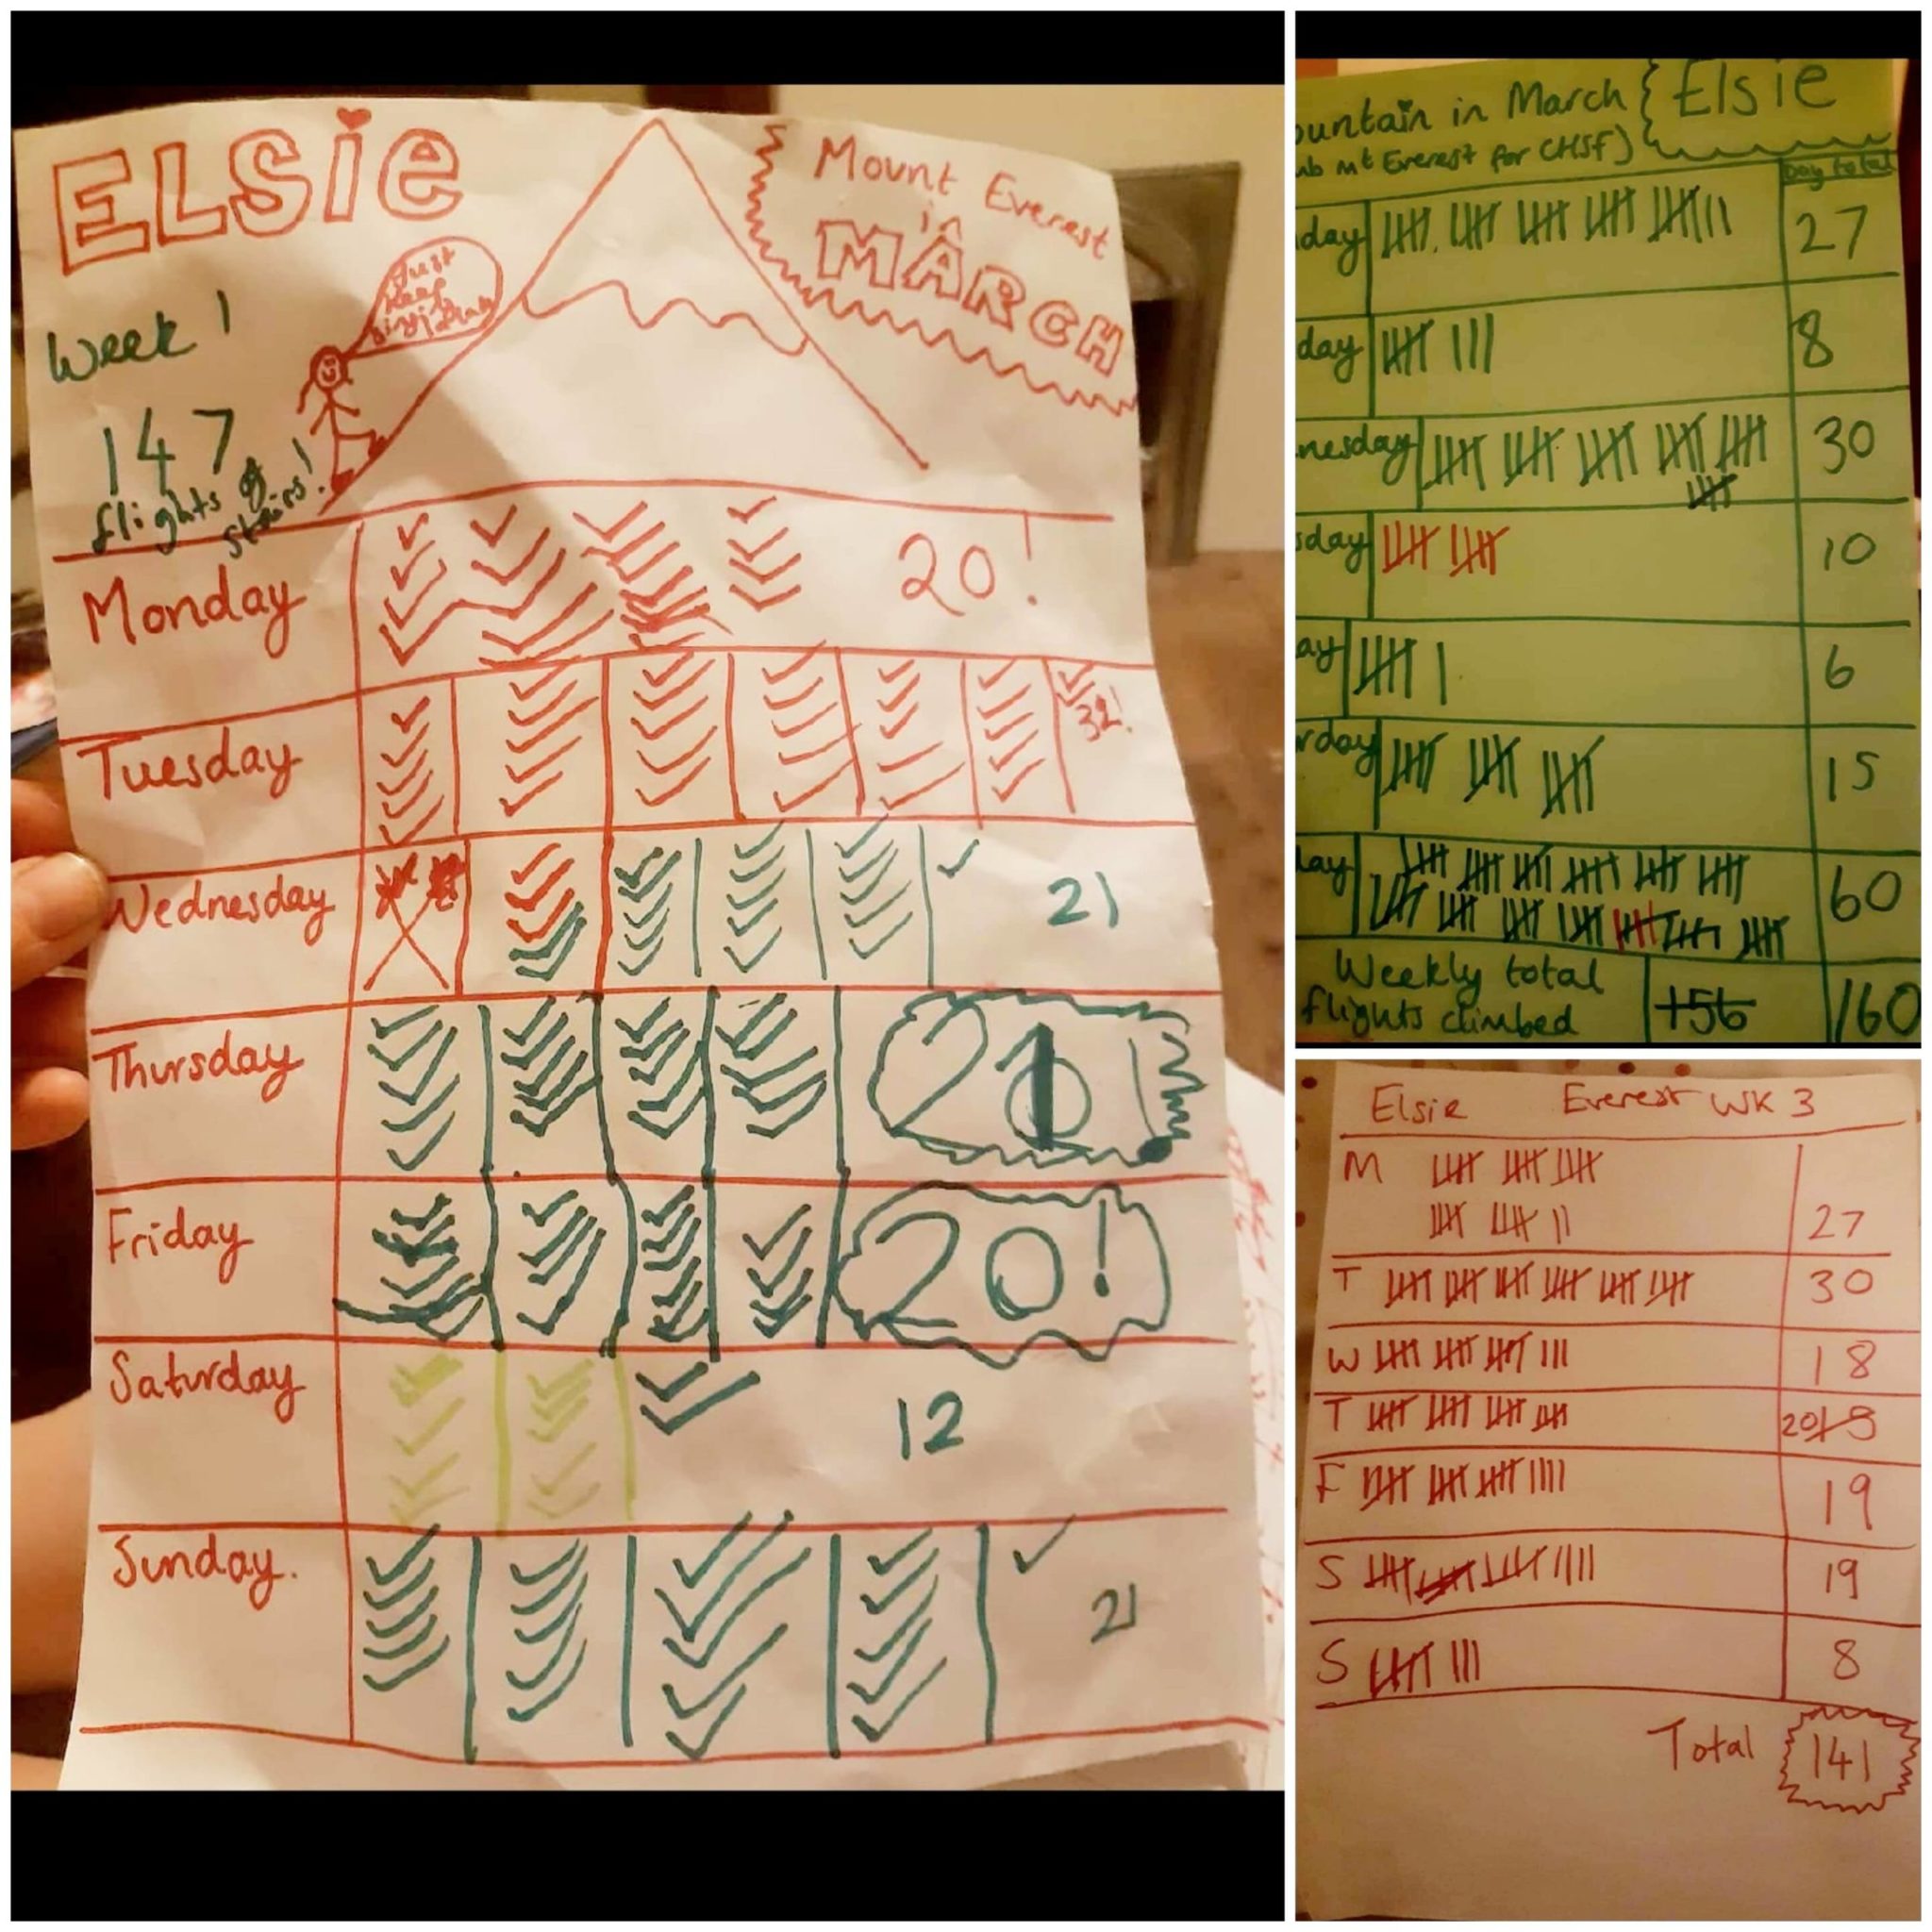 ELSiE
Mount Everest
in
MARCH
Just
Keep
Week 1
147
flights of
stairs!
Monday 20!
Tuesday 32!
Wednesday 21
Thursday 21!
Friday 20!
Saturday 12
Sunday. 21
ountain in March
Elsie
mb mt Everest for CHSF)
Day total
day 27
day 8
nesday 30
sday 10
ay 6
rday 15
day 60
Weekly total
flights climbed
+56 160
Elsie Everest WK 3
M
27
T 30
W 18
T 20
F 19
S 19
S 8
Total 141